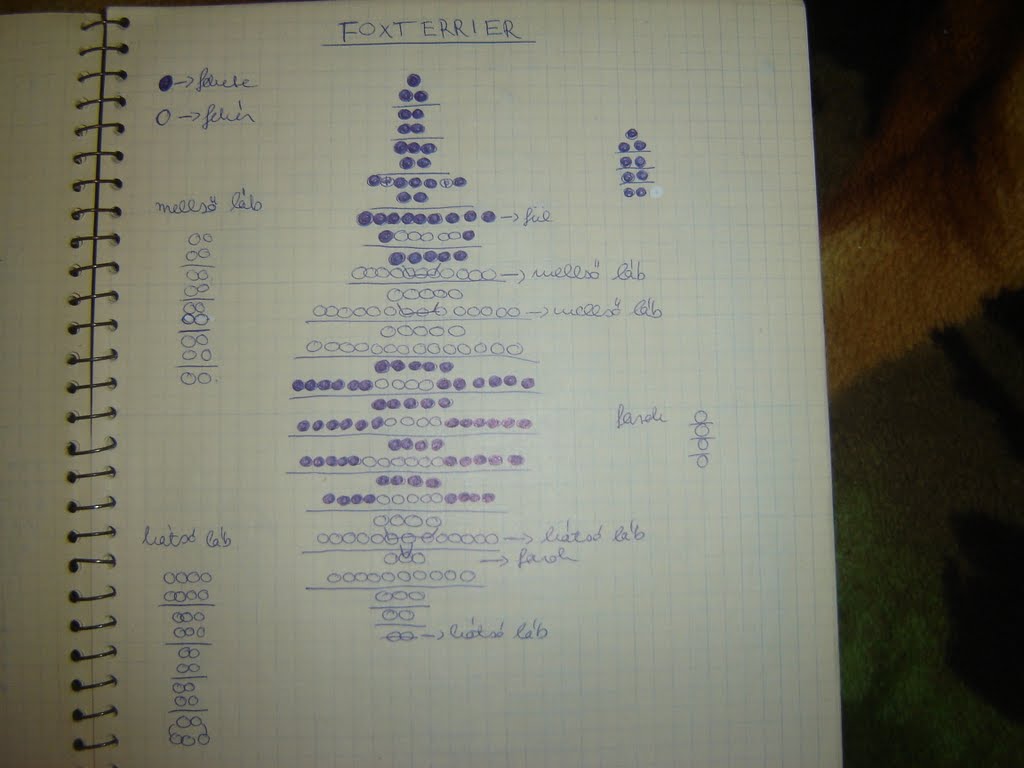 FOXTERRIER
→ fekete
→ fehér
mellső láb
→ fül
→ mellső láb
→ mellső láb
farok
hátsó láb
→ hátsó láb
→ farok
→ hátsó láb